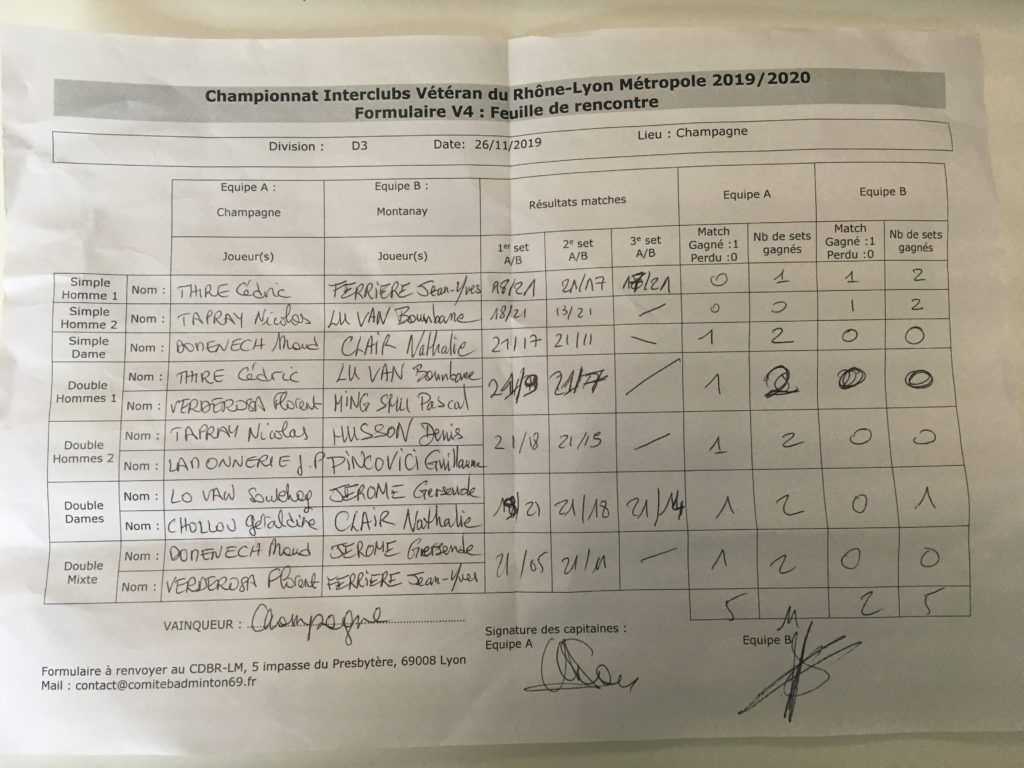 Championnat Interclubs Vétéran du Rhône-Lyon Métropole 2019/2020
Formulaire V4 : Feuille de rencontre
Division : D3 Date: 26/11/2019 Lieu : Champagne
Equipe A : Equipe B : Résultats matches Equipe A Equipe B
Champagne Montanay
Joueur(s) Joueur(s) 1er set A/B 2e set A/B 3e set A/B Match Gagné :1 Perdu :0 Nb de sets gagnés Match Gagné :1 Perdu :0 Nb de sets gagnés
Simple Homme 1 Nom : THIRE Cédric FERRIERE Jean-Yves 18/21 21/17 /21 0 1 1 2
Simple Homme 2 Nom : TAPRAY Nicolas LU VAN Bounbane 18/21 13/21 / 0 0 1 2
Simple Dame Nom : DOMENECH Maud CLAIR Nathalie 21/17 21/11 / 1 2 0 0
Double Hommes 1 Nom : THIRE Cédric LU VAN Bounbane 1 2 0 0
Nom : VERDEROSA Florent Pascal
Double Hommes 2 Nom : TAPRAY Nicolas HUSSON Denis 21/18 21/15 / 1 2 0 0
Nom : LADONNERIE J.P PINCOVICI Guillaume
Double Dames Nom : LO VAN JEROME Gersende /21 21/18 21/14 1 2 0 1
Nom : CHOLLOU Géraldine CLAIR Nathalie
Double Mixte Nom : DOMENECH Maud JEROME Gersende 21/05 21/11 / 1 2 0 0
Nom : VERDEROSA Florent FERRIERE Jean-Yves
5 11 2 5
VAINQUEUR : Champagne
Signature des capitaines :
Equipe A Equipe B
Formulaire à renvoyer au CDBR-LM, 5 impasse du Presbytère, 69008 Lyon
Mail : contact@comitebadminton69.fr